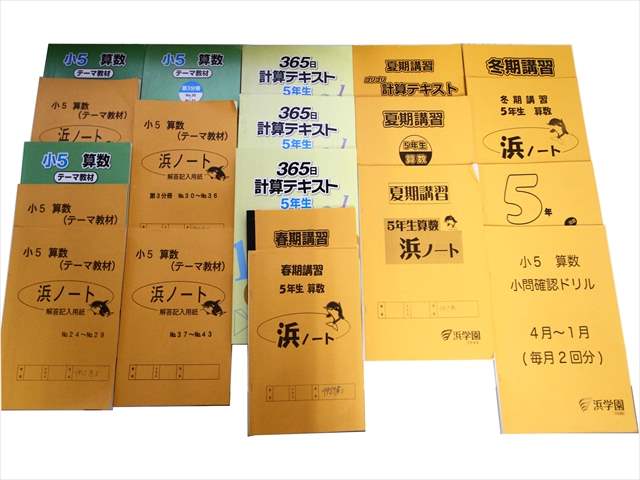 小5 算数
テーマ教材
小5 算数
テーマ教材
第3分冊
365日
計算テキスト
5年生
365日
計算テキスト
5年生
365日
計算テキスト
5年生
夏期講習
ゴリゴリ
計算テキスト
夏期講習
5年生
算数
冬期講習
小5 算数
(テーマ教材)
浜ノート
小5 算数
(テーマ教材)
浜ノート
解答記入用紙
第3分冊 No.30～No.36
冬期講習
5年生 算数
浜ノート
小5 算数
テーマ教材
小5 算数
(テーマ教材)
小5 算数
(テーマ教材)
浜ノート
解答記入用紙
No.24～No.29
小5 算数
(テーマ教材)
浜ノート
解答記入用紙
No.37～No.43
春期講習
春期講習
5年生 算数
浜ノート
夏期講習
5年生算数
浜ノート
浜学園
5年
小5 算数
小問確認ドリル
4月～1月
(毎月2回分)
浜学園